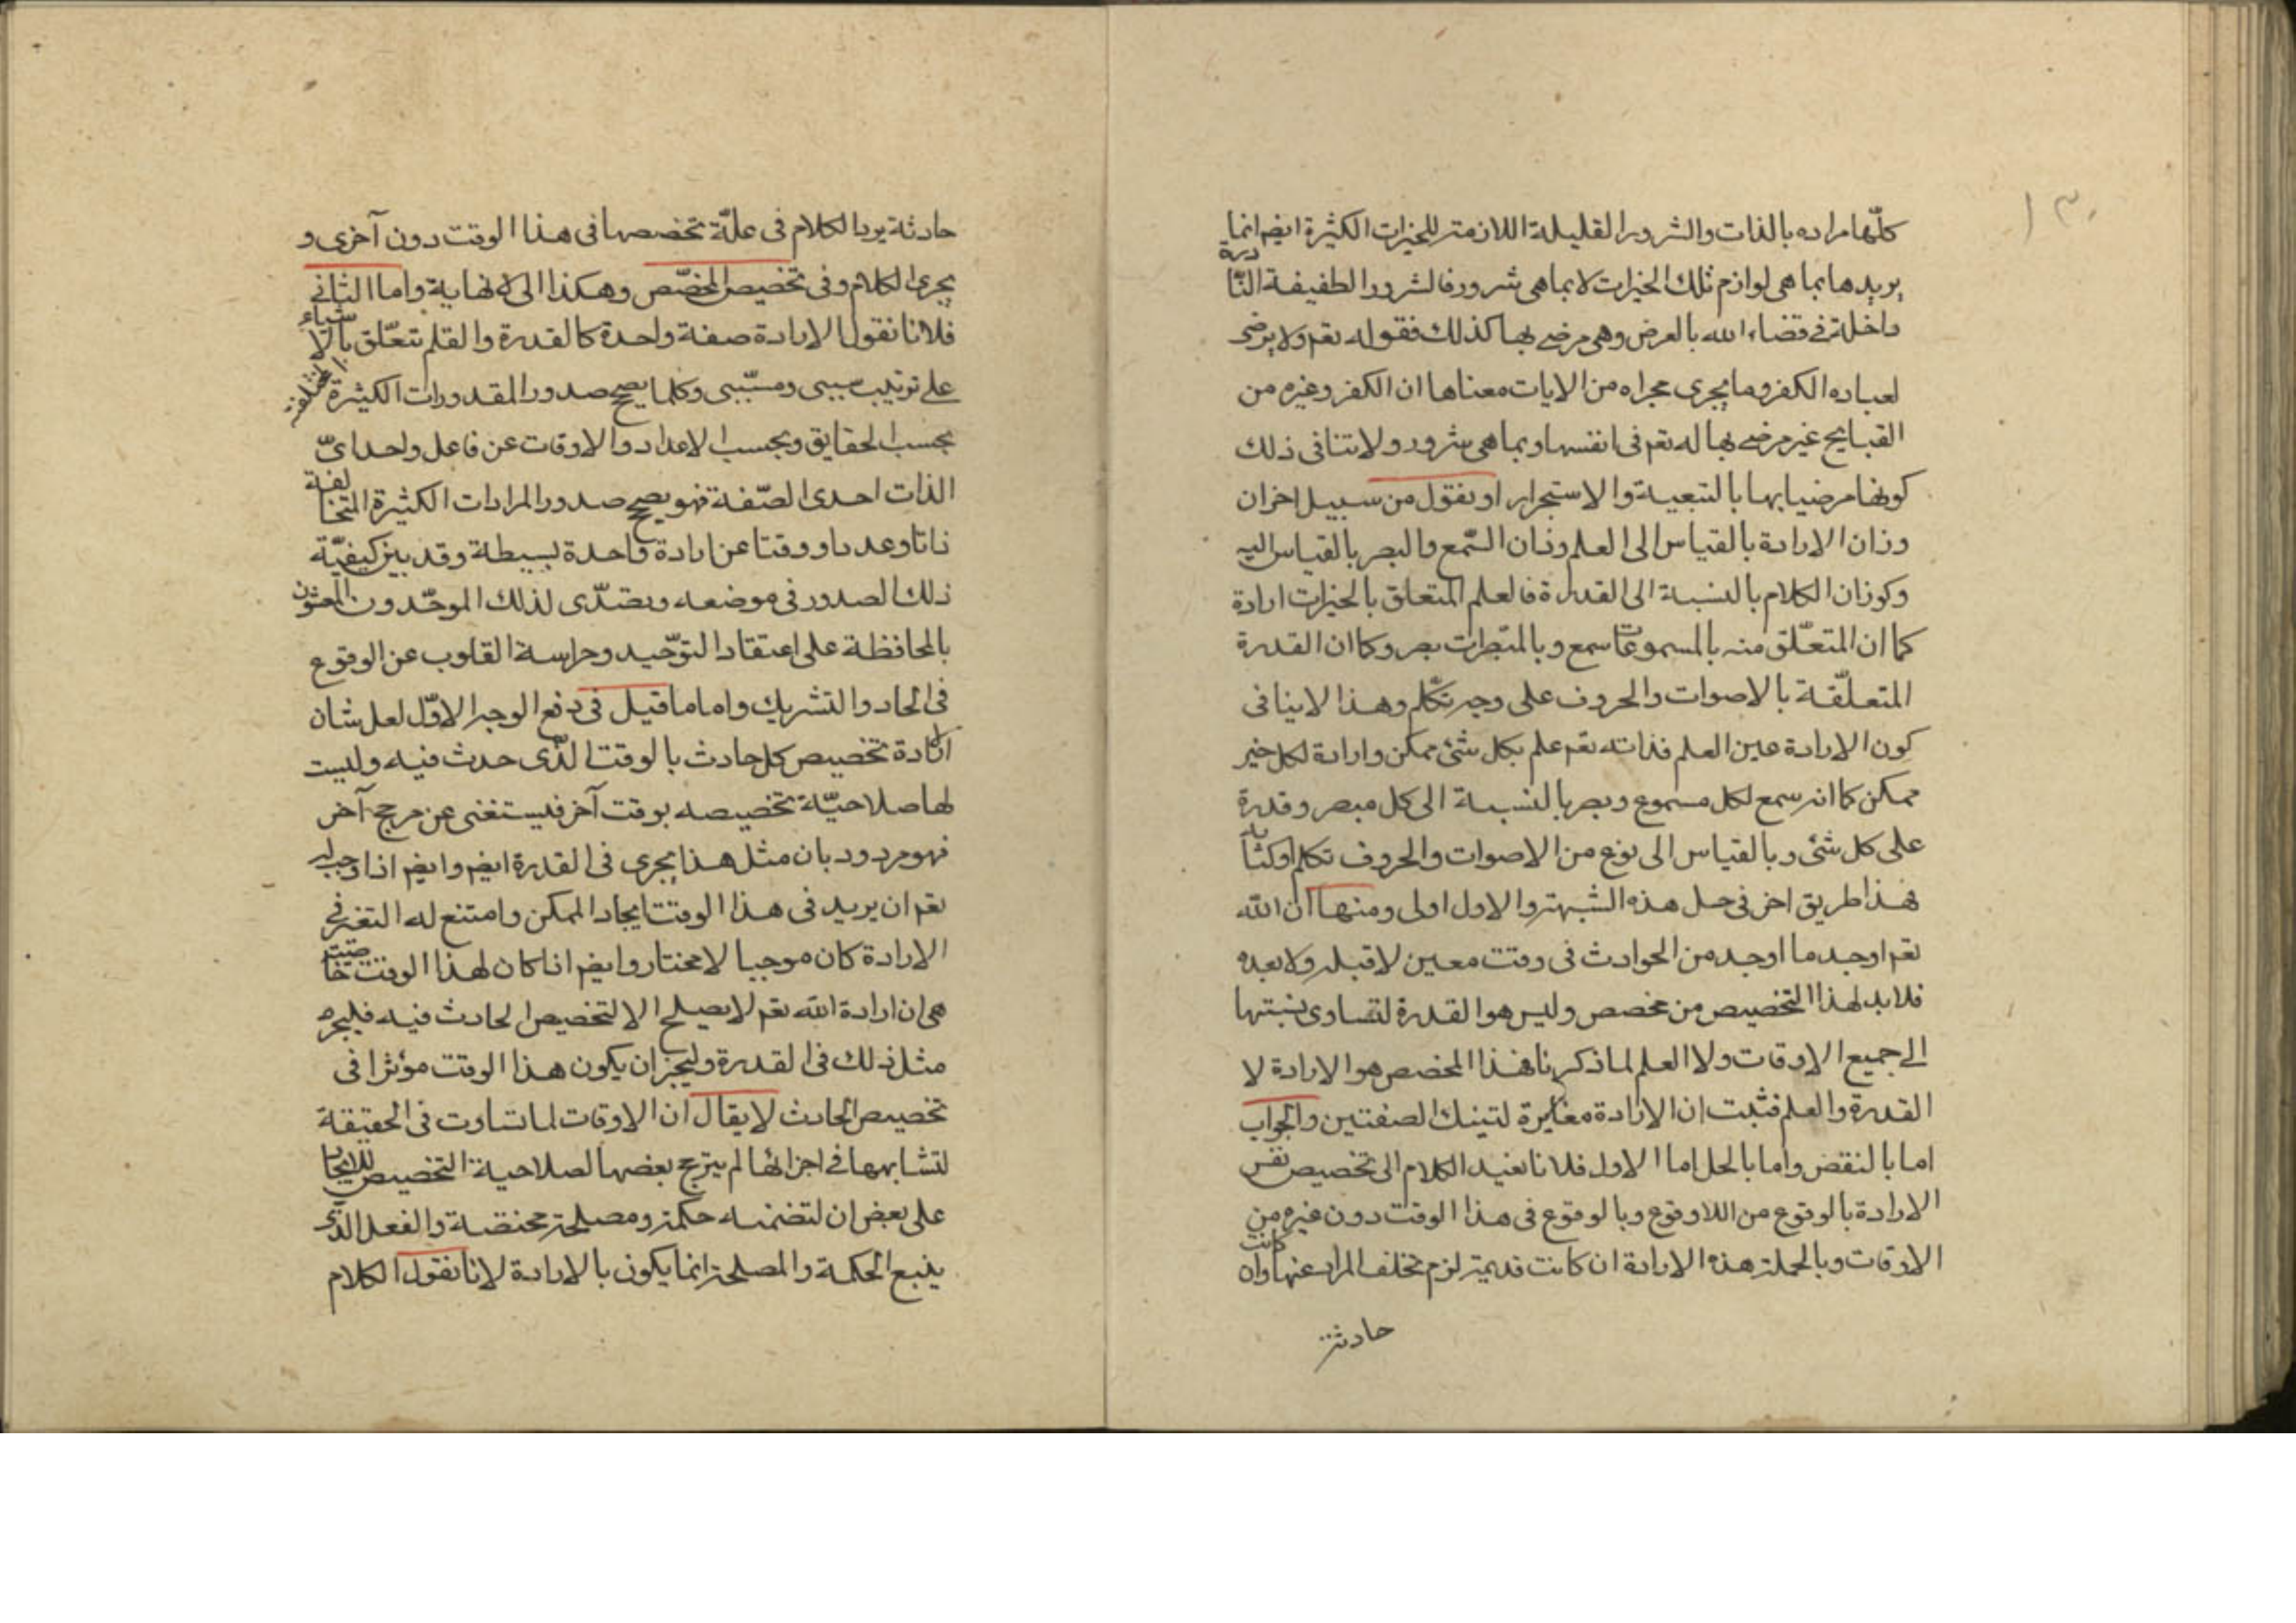 ١٣٠
كلّها مراده بالذات والشرور القليلة اللازمة للخيرات الكثيرة ايضم انما
يريدها بما هى لوازم تلك الخيرات لا بما هى شرور فالشرور الطفيفة النّادرة
داخلة فى قضاء الله بالعرض وهى مرضى بها كذلك فقوله تعم ولا يرضى
لعباده الكفر وما يجرى مجراه من الايات معناها ان الكفر وغيره من
القبايح غير مرضى بها له تعم فى انفسها وبما هى شرور ولا تنافى ذلك
كونها مرضيا بها بالتبعية والاستجرار او نقول من سبيل اخر ان
وزان الارادة بالقياس الى العلم وزان السّمع والبصر بالقياس اليه
وكوزان الكلام بالنسبة الى القدرة فالعلم المتعلق بالخيرات ارادة
كما ان المتعلّق منه بالمسموعات سمع وبالمبصرات بصر وكما ان القدرة
المتعلّقة بالاصوات والحروف على وجه تكلّم وهذا لا ينافى
كون الارادة عين العلم فذاته تعم علم بكل شئ ممكن وارادة لكل خير
ممكن كما انه سمع لكل مسموع وبصر بالنسبة الى كل مبصر وقدرة
على كل شئ وبالقياس الى نوع من الاصوات والحروف تكلم او كتابة
فهذا طريق اخر فى حل هذه الشبهة والاول اولى ومنها ان الله
تعم اوجد ما اوجد من الحوادث فى وقت معين لا قبله ولا بعده
فلا بد لهذا التخصيص من مخصص وليس هو القدرة لتساوى نسبتها
الى جميع الاوقات ولا العلم لما ذكرنا فهذا المخصص هو الارادة لا
القدرة والعلم فثبت ان الارادة مغايرة لتينك الصفتين والجواب
اما بالنقض واما بالحل اما الاول فلانا نعيد الكلام الى تخصيص نفس
الارادة بالوقوع من اللاوقوع وبالوقوع فى هذا الوقت دون غيره من
الاوقات وبالجملة هذه الارادة ان كانت قديمة لزم تخلف المراد عنها وان كانت
حادثة
حادثة يرد الكلام فى علّة تخصصها فى هذا الوقت دون آخرى و
يجرى الكلام وفى تخصيص المخصّص وهكذا الى لا نهاية واما الثانى
فلانا نقول الارادة صفة واحدة كالقدرة والقلم تتعّلق بالاشياء
على ترتيب سببى ومسّببى وكلما يصح صدور المقدورات الكثيرة المختلفة
بحسب الحقايق وبحسب الاعداد والاوقات عن فاعل واحد اىّ
الذات احدى الصّفة فهو يصح صدور المرادات الكثيرة المتخالفة
ذاتا وعددا ووقتا عن ارادة واحدة بسيطة وقد بين كيفيّة
ذلك الصدور فى موضعه ويتصدّى لذلك الموحّدون المعتنون
بالمحافظة على اعتقاد التوّحيد وحراسة القلوب عن الوقوع
فى الحاد والتشريك واما ما قيل فى دفع الوجه الاوّل لعل شان
الارادة تخصيص كل حادث بالوقت الذّى حدث فيه وليست
لها صلاحيّة تخصيصه بوقت آخر فيستغنى عن مرجح آخر
فهو مردود بان مثل هذا يجرى فى القدرة ايضم وايضم اذا وجب له
تعم ان يريد فى هذا الوقت ايجاد الممكن وامتنع له التغير فى
الارادة كان موجبا لا مختار وايضم اذا كان لهذا الوقت خاصيته
هى ان ارادة الله تعم لا يصلح الا لتخصيص الحادث فيه فليجره
مثل ذلك فى القدرة وليجز ان يكون هذا الوقت مؤثرا فى
تخصيص الحادث لا يقال ان الاوقات لما تساوت فى الحقيقة
لتشابهها فى اجزائها لم يترجح بعضها لصلاحية التخصيص للايجاد
على بعض ان لتضمنه حكمة ومصلحة مختصة والفعل الذّى
يتبع الحكمة والمصلحة انما يكون بالارادة لانا نقول الكلام